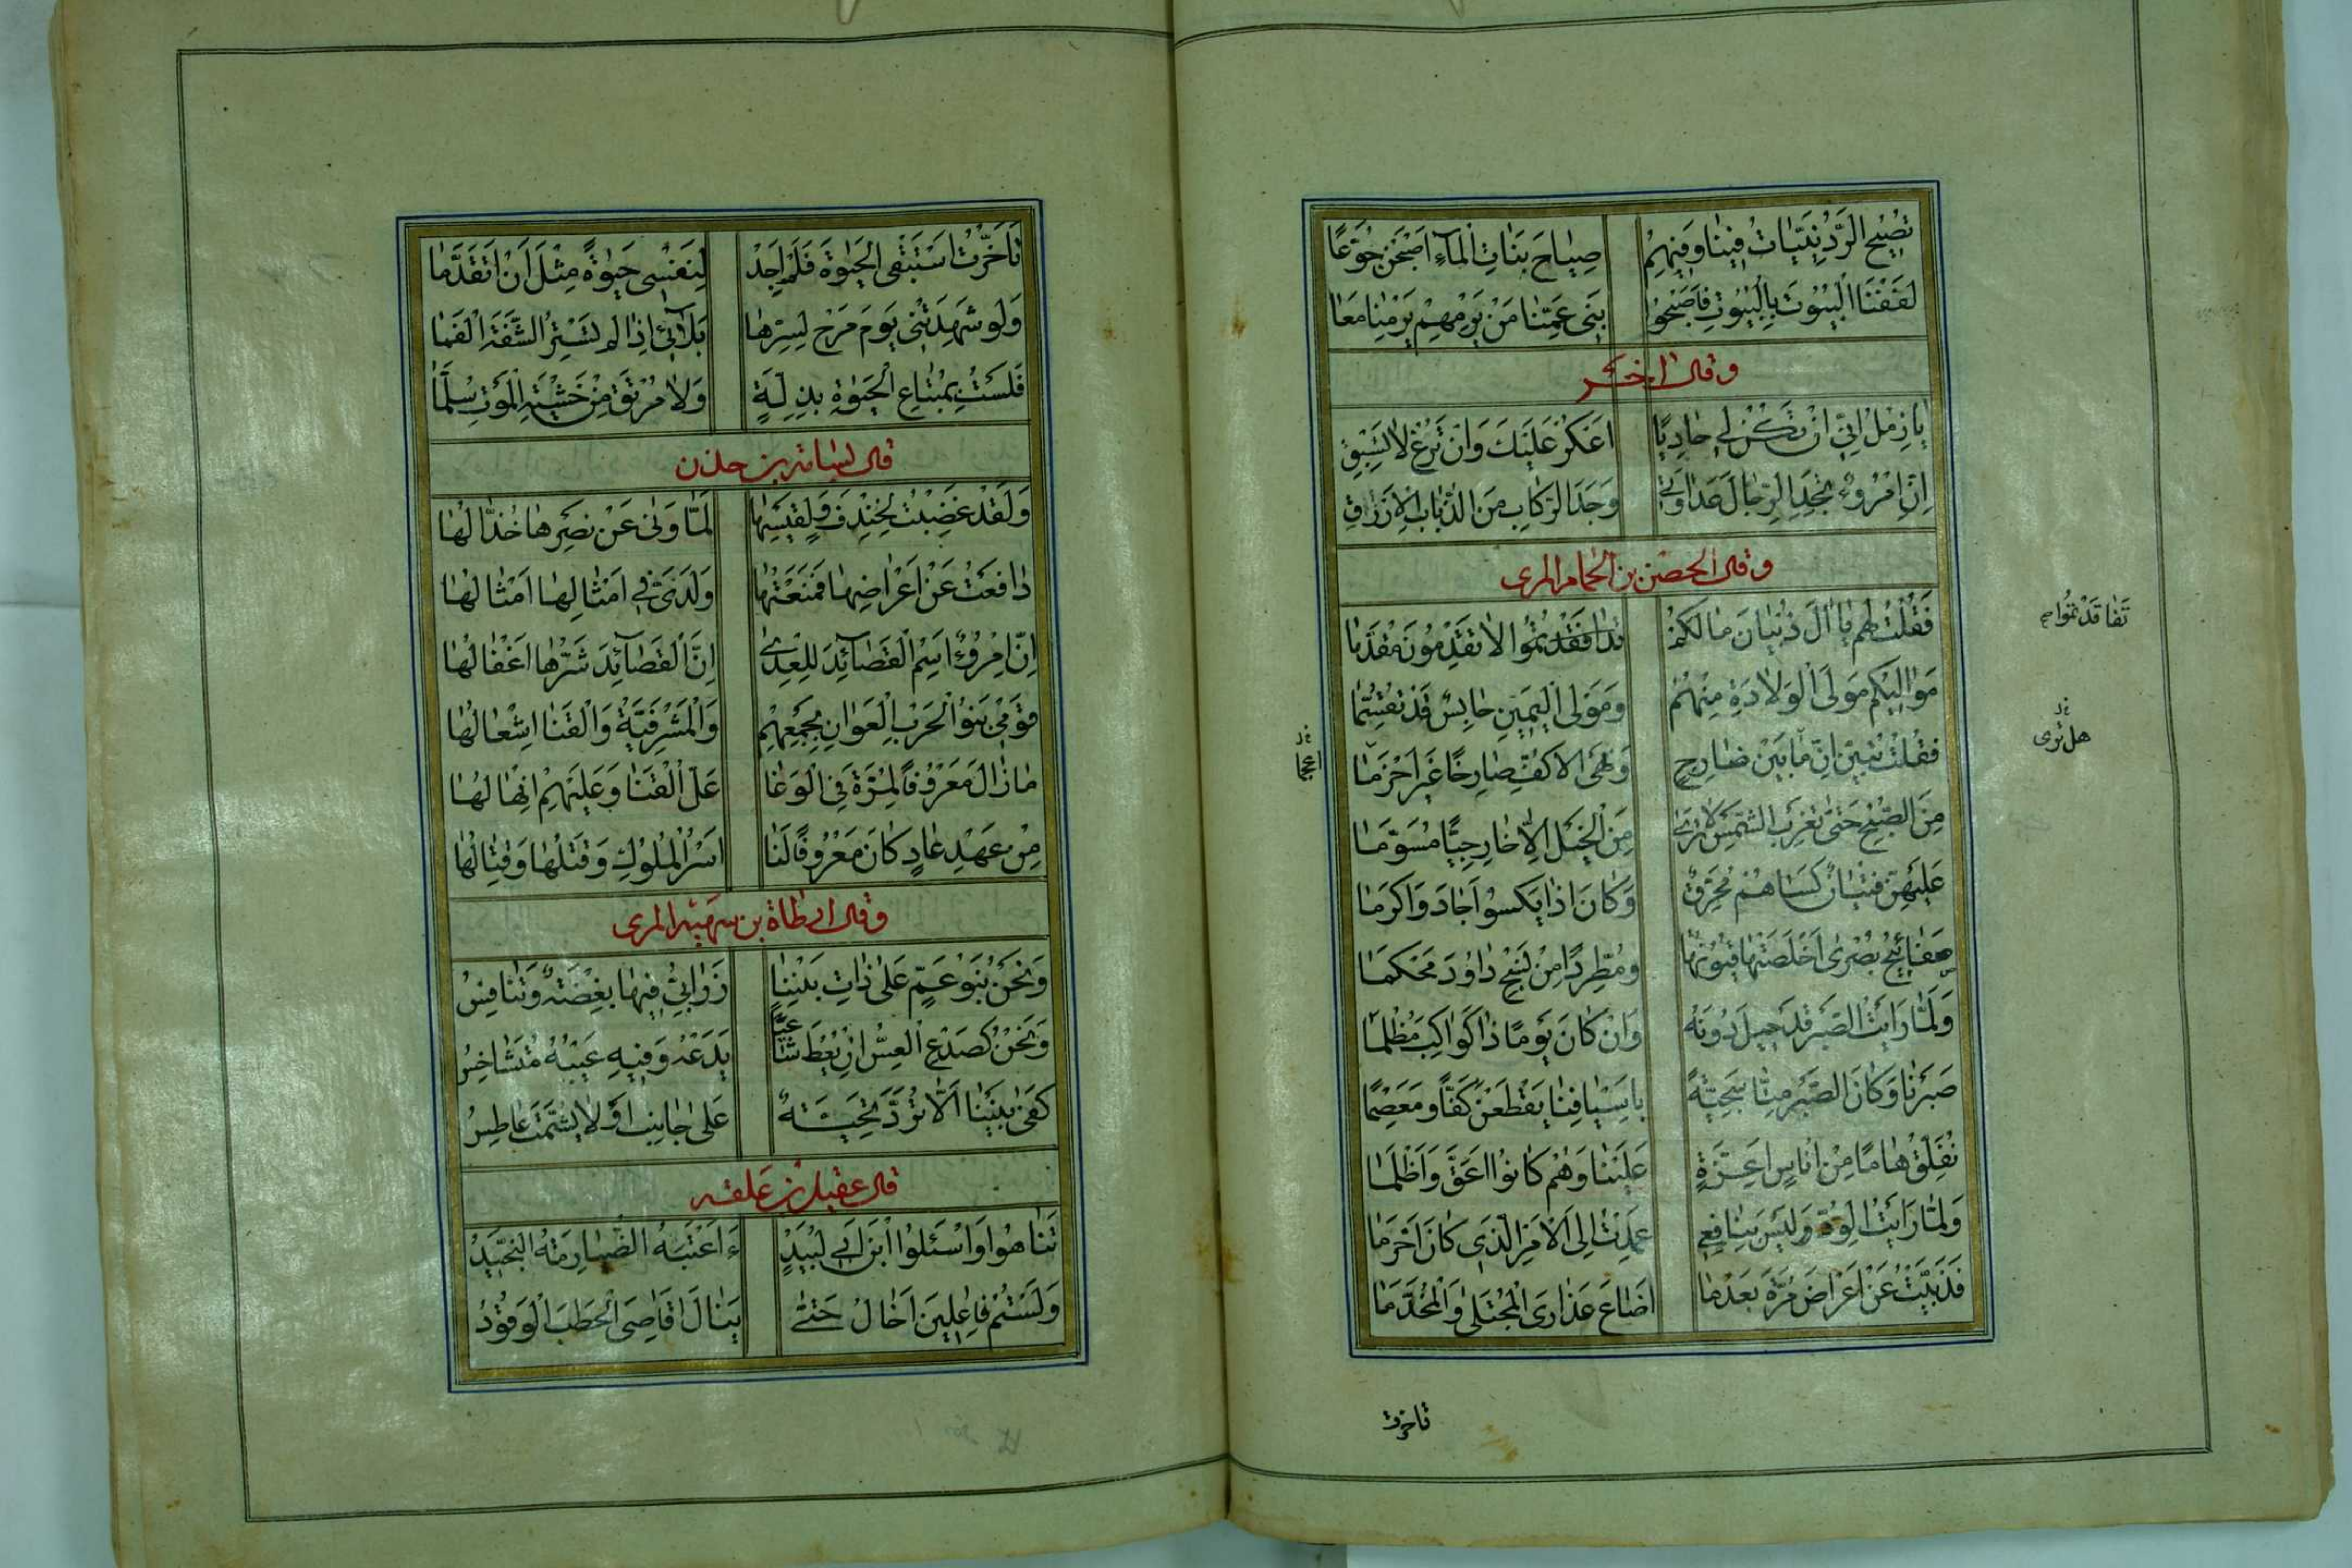 تُصْبِحُ الرُّدَيْنِيَّاتُ فِينَا وَفِيهِمْ صِيَاحَ بَنَاتِ الْمَاءِ اَصْبَحْنَ جُوَّعًا
لَفَفْنَا الْبُيُوتَ بِالْبُيُوتِ فَاَصْبَحُوا بَنِى عَمِّنَا مَنْ يَرْمِهِمْ يَرْمِنَا مَعَا
وقال اخر
يا زِمْلُ اِنِّى اِنْ تَكُنْ لِى حَادِيًا اَعْكُرْ عَلَيْكَ وَاِنْ تَرُغْ لَا تَسْبِقِ
اِنِّى امْرُؤٌ تَجِدُ الرِّجَالُ عَدَاوَتِى وَجَدَ الرِّكَابِ مِنَ الذُّبَابِ الْاَزْرَقِ
وقال الحصين بن الحمام المرى
فَقُلْتُ لَهُمْ يَا اٰلَ ذُبْيَانَ مَا لَكُمْ تَفَاقَدْتُمُوا لَا تُقَدِّمُونَ مُقَدَّمَا
تفاقدتموا صح
مَوَالِيكُمْ مَوْلَى الْوِلَادَةِ مِنْهُمُ وَمَوْلَى الْيَمِينِ حَابِسٌ قَدْ تُقُسِّمَا
فَقُلْتُ تَبَيَّنْ اِنَّ مَا بَيْنَ ضَارِجٍ وَنَهْىِ الْاَكُفِّ صَارِخًا غَيْرَ اَخْرَمَا
هل ترى
اعجما
مِنَ الصُّبْحِ حَتّٰى تَغْرُبَ الشَّمْسُ لَا تَرٰى مِنَ الْخَيْلِ اِلَّا خَارِجِيًّا مُسَوَّمَا
عَلَيْهِنَّ فِتْيَانٌ كَسَاهُمْ مُحَرِّقٌ وَكَانَ اِذَا يَكْسُوا اَجَادَ وَاَكْرَمَا
صَفَائِحَ بُصْرٰى اَخْلَصَتْهَا قُيُونُهَا وَمُطَّرِدًا مِنْ نَسْجِ دَاوُدَ مُحْكَمَا
وَلَمَّا رَاَيْتُ الصَّبْرَ قَدْ حِيلَ دُونَهُ وَاِنْ كَانَ يَوْمًا ذَا كَوَاكِبَ مُظْلِمَا
صَبَرْنَا وَكَانَ الصَّبْرُ مِنَّا سَجِيَّةً بِاَسْيَافِنَا يَقْطَعْنَ كَفًّا وَمِعْصَمَا
نُفَلِّقُ هَامًا مِنْ اُنَاسٍ اَعِزَّةٍ عَلَيْنَا وَهُمْ كَانُوا اَعَقَّ وَاَظْلَمَا
وَلَمَّا رَاَيْتُ الْوُدَّ وَلَيْسَ بِنَافِعِى عَمِدْتُ اِلَى الْاَمْرِ الَّذِى كَانَ اَحْزَمَا
فَذَبَّيْتُ عَنْ اَعْرَاضِ مُرَّةَ بَعْدَمَا اَضَاعَ عَذَارَى الْمُجْتَلٰى وَالْمُخَدَّمَا
تاخرت
تَاَخَّرْتُ اَسْتَبْقِى الْحَيٰوةَ فَلَمْ اَجِدْ لِنَفْسِى حَيٰوةً مِثْلَ اَنْ اَتَقَدَّمَا
وَلَوْ شَهِدَتْنِى يَوْمَ مَرْجِ لِسِرِّهَا بَلَائِى اِذَا لَمْ تَسْتُرِ الشَّفَةُ الْفَمَا
فَلَسْتُ بِمُبْتَاعِ الْحَيٰوةِ بِذِلَّةٍ وَلَا مُرْتَقٍ مِنْ خَشْيَةِ الْمَوْتِ سُلَّمَا
قال بشامة بن حزن
وَلَقَدْ غَضِبْتُ لِخِنْدِفَ وَلِقَيْسِهَا لَمَّا وَنٰى عَنْ نَصْرِهَا خُذَّالُهَا
دَافَعْتُ عَنْ اَعْرَاضِهَا فَمَنَعْتُهَا وَلَدَىَّ فِى اَمْثَالِهَا اَمْثَالُهَا
اِنِّى امْرُؤٌ اَسِمُ الْقَصَائِدَ لِلْعِدٰى اِنَّ الْقَصَائِدَ شَرُّهَا اَغْفَالُهَا
قَوْمِى بَنُو الْحَرْبِ الْعَوَانِ بِجَمْعِهِمْ وَالْمَشْرَفِيَّةُ وَالْقَنَا اِشْعَالُهَا
مَا زَالَ مَعْرُوفًا لِمُرَّةَ فِى الْوَغَا عَلُّ الْقَنَا وَعَلَيْهِمْ اِنْهَالُهَا
مِنْ عَهْدِ عَادٍ كَانَ مَعْرُوفًا لَنَا اَسْرُ الْمُلُوكِ وَقَتْلُهَا وَقِتَالُهَا
وقال ارطاة بن سهية المرى
وَنَحْنُ بَنُو عَمٍّ عَلٰى ذَاتِ بَيْنِنَا زَرَابِىُّ فِيهَا بِغْضَةٌ وَتَنَافُسُ
وَنَحْنُ كَصَدْعِ الْعُسِّ اِنْ يُعْطَ شَاعِبًا يَدَعْهُ وَفِيهِ عَيْبُهُ مُتَشَاخِسُ
كَفٰى بَيْنَنَا اَلَّا تُرَدَّ تَحِيَّةٌ عَلٰى جَانِبٍ اَوْ لَا يُشَمَّتَ عَاطِسُ
قال عقيل بن علفه
تَنَاهَوْا وَاسْئَلُوا ابْنَ اَبِى لَبِيدٍ ءَاَعْتَبَهُ الضُّبَارِمَةُ النَّجِيدُ
وَلَسْتُمْ فَاعِلِينَ اَخَالُ حَتّٰى يَنَالَ اَقَاصِىَ الْحَطَبِ الْوَقُودُ